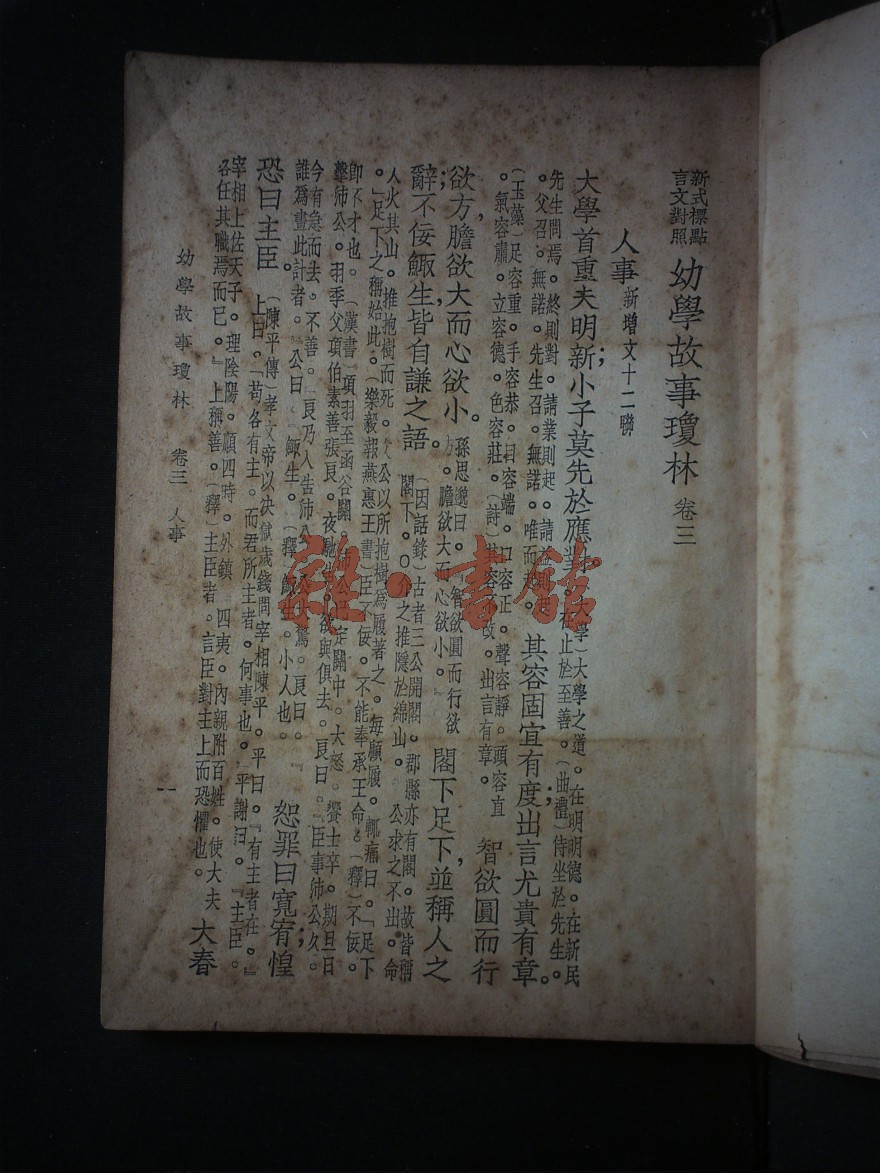 新式標點
言文對照
幼學故事瓊林 卷三
人事 新增文十二聯
大學首重夫明新；小子莫先於應對。（大學）大學之道。在明明德。在新民
在止於至善。（曲禮）侍坐於先生。
先生問焉。終則對。請業則起。請益則起
。父召。無諾。先生召。無諾。唯而起。
其容固宜有度；出言尤貴有章。
（玉藻）足容重。手容恭。目容端。口容正。聲容靜。頭容直
。氣容肅。立容德。色容莊。（詩）其容不改。出言有章。
智欲圓而行
欲方，膽欲大而心欲小。
孫思邈曰。『智欲圓而行欲
方。膽欲大而心欲小。』
閣下足下，並稱人之
辭；不佞鯫生，皆自謙之語。
（因話錄）古者三公開閣。郡縣亦有閣。故皆稱
閣下。○介之推隱於綿山。 公求之不出。命
人火其山。推抱樹而死。文公以所抱樹爲履著之。每顧履。輒痛曰。『足下
。』足下之稱始此。（樂毅報燕惠王書）臣不佞。不能奉承王命。（釋）不佞。
卽不才也。（漢書）項羽至函谷關。沛公已定關中。大怒。饗士卒。期旦日
擊沛公。羽季父項伯素善張良。夜馳 欲與俱去。良曰。『臣事沛公久。
今有急而去。不善。』良乃入告沛公。公驚。良曰。『
誰爲畫此計者。』公曰。『鯫生。』（釋）鯫生。小人也。
恕罪曰寬宥；惶
恐曰主臣。
（陳平傳）孝文帝以決獄歲錢問宰相陳平。平曰。『有主者在。』
上曰。『苟各有主。而君所主者。何事也。』平謝曰。『主臣。
宰相上佐天子。理陰陽。順四時。外鎮 四夷。內親附百姓。使大夫
各任其職焉而已。』上稱善。（釋）主臣者。言臣對主上而恐懼也。
大春
幼學故事瓊林 卷三 人事
一
雜·書館